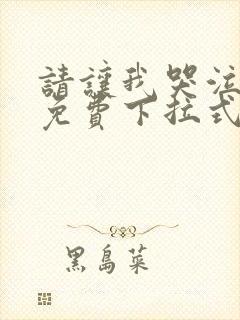 請讓我哭泣
免費下拉式
黑島菜